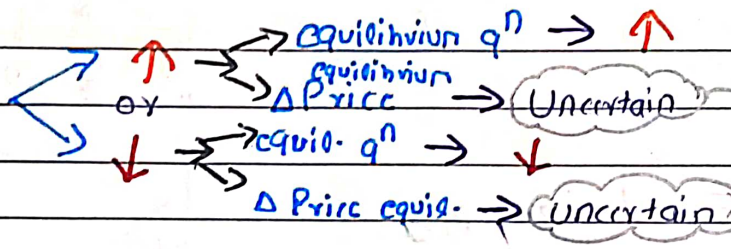 ↑ → equilibrium qⁿ → ↑
equilibrium
Δ Price → Uncertain
or
↓ → equil. qⁿ → ↓
Δ Price equil. → uncertain